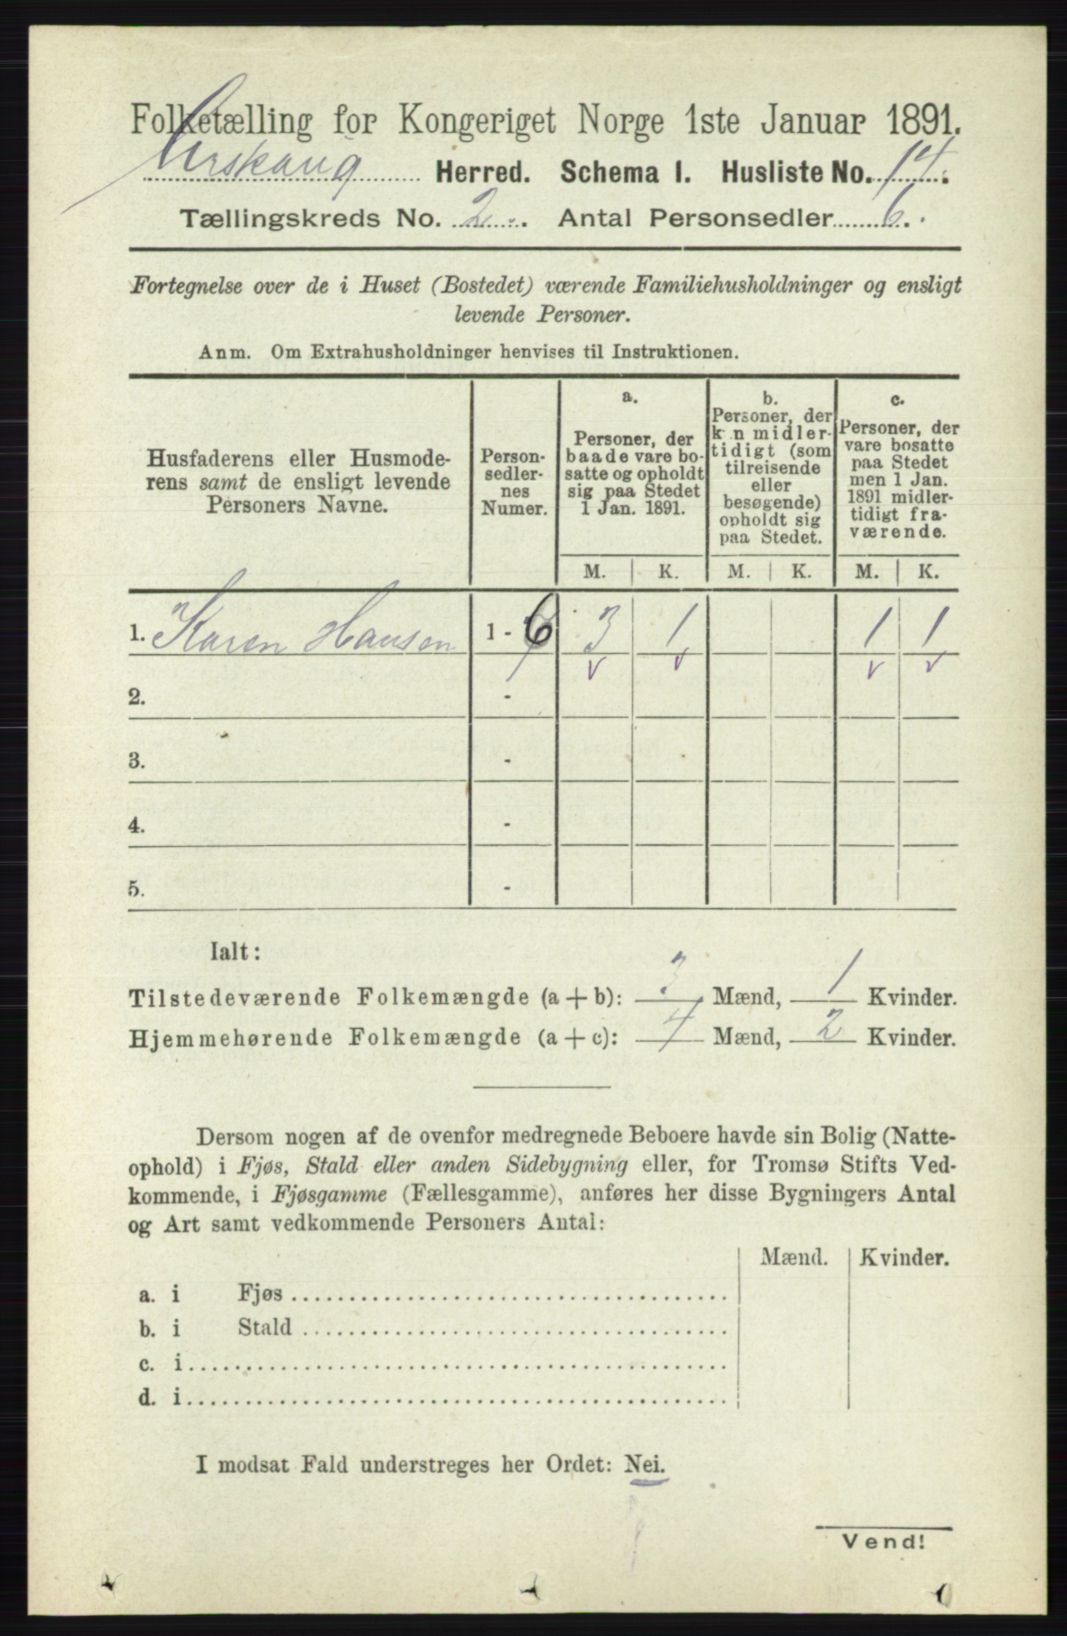 Folketælling for Kongeriget Norge 1ste Januar 1891.
Urskaug Herred. Schema I. Husliste No. 14.
Tællingskreds No. 2. Antal Personsedler 6.
Fortegnelse over de i Huset (Bostedet) værende Familiehusholdninger og ensligt
levende Personer.
Anm. Om Extrahusholdninger henvises til Instruktionen.
Husfaderens eller Husmode-
rens samt de ensligt levende
Personers Navne.
Person-
sedler-
nes
Numer.
a.
Personer, der
baade vare bo-
satte og opholdt
sig paa Stedet
1 Jan. 1891.
b.
Personer, der
kun midler-
tidigt (som
tilreisende
eller
besøgende)
opholdt sig
paa Stedet.
c.
Personer, der
vare bosatte
paa Stedet
men 1 Jan.
1891 midler-
tidigt fra-
værende.
M. K. M. K. M. K.
1. Karen Hansen 1 - 6 3 1 1 1
v v v v
2. -
3. -
4. -
5. -
Ialt:
Tilstedeværende Folkemængde (a + b): 3 Mænd, 1 Kvinder.
Hjemmehørende Folkemængde (a + c): 4 Mænd, 2 Kvinder.
Dersom nogen af de ovenfor medregnede Beboere havde sin Bolig (Natte-
ophold) i Fjøs, Stald eller anden Sidebygning eller, for Tromsø Stifts Ved-
kommende, i Fjøsgamme (Fællesgamme), anføres her disse Bygningers Antal
og Art samt vedkommende Personers Antal:
Mænd. Kvinder.
a. i Fjøs
b. i Stald
c. i
d. i
I modsat Fald understreges her Ordet: Nei.
Vend!